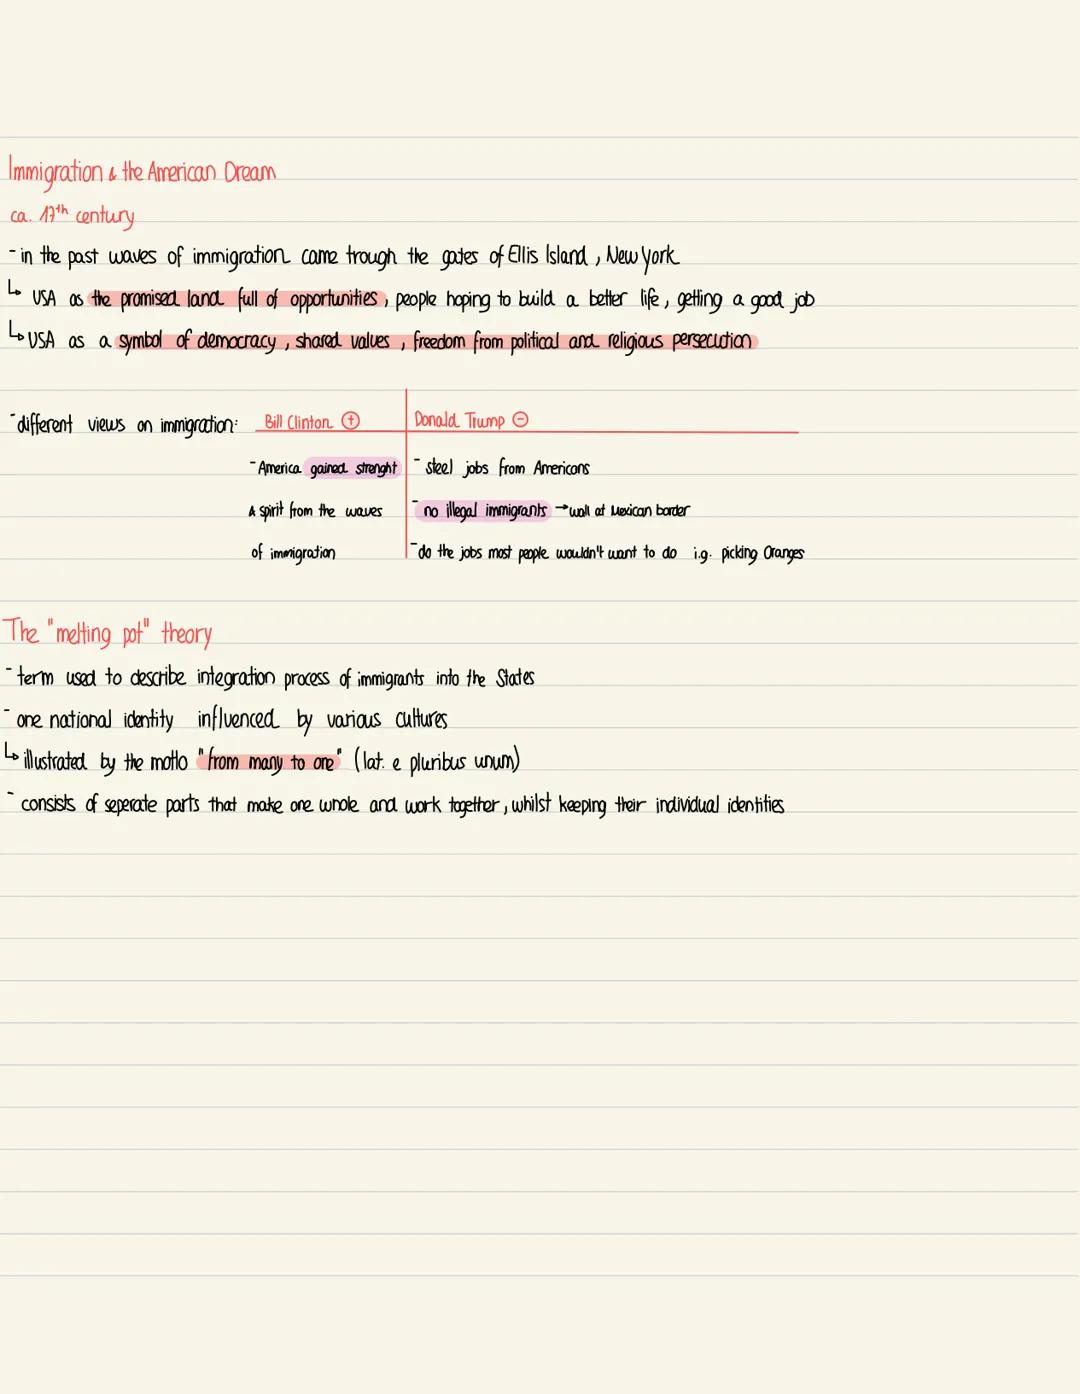 Immigration & the American Dream
ca. 17th century
- in the past waves of immigration came trough the gates of Ellis Island, New York
↳ USA as the promised land full of opportunities, people hoping to build a better life, getting a good job
↳ USA as a symbol of democracy, shared values, freedom from political and religious persecution
- different views on immigration: Bill Clinton ⊕ Donald Trump ⊖
- America gained strenght - steel jobs from Americans
& spirit from the waves - no illegal immigrants → wall at Mexican border
of immigration - do the jobs most people wouldn't want to do i.g. picking Oranges
The "melting pot" theory
- term used to describe integration process of immigrants into the States
- one national identity influenced by various cultures
↳ illustrated by the motto "from many to one" (lat. e pluribus unum)
- consists of seperate parts that make one whole and work together, whilst keeping their individual identities